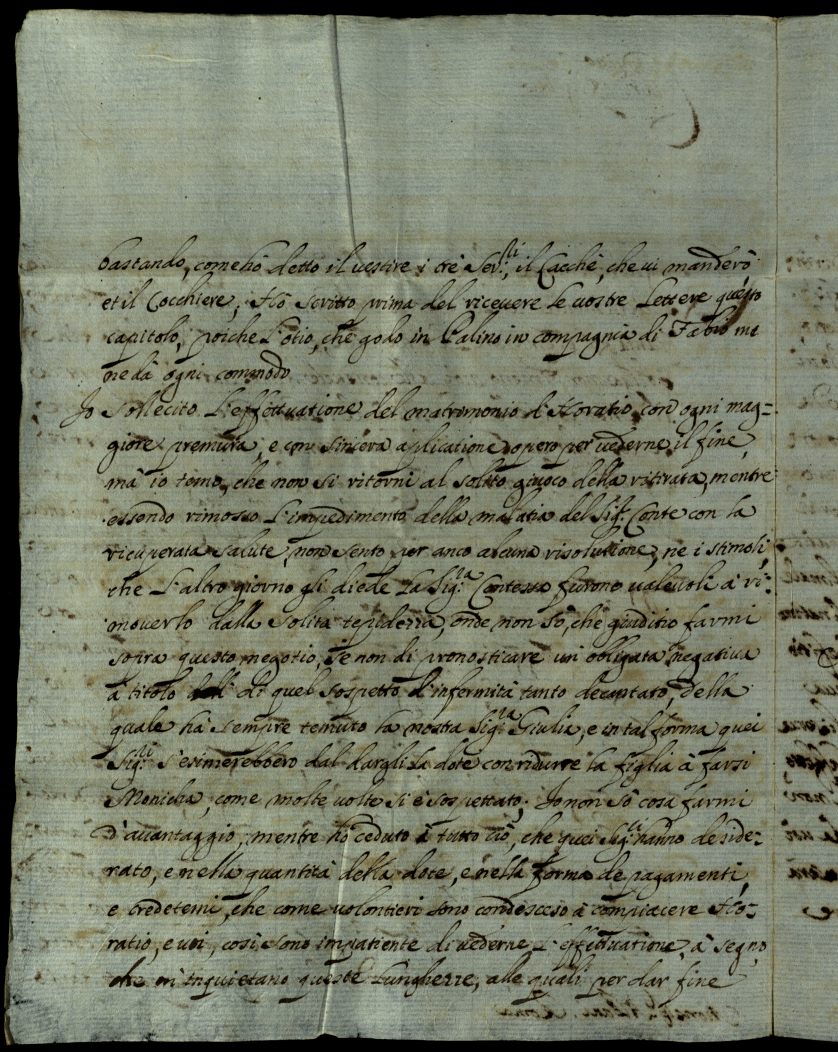 bastando, come hò detto il vestire i trè Ser.ri, il Lacchè, che vi manderò
et il Cocchiere; Hò scritto prima del ricevere le vostre lettere questo
capitolo, poiche l'otio, che godo in Palino in compagnia di Fabio me
ne dà ogni commodo
Io sollecito l'effettuatione del matrimonio d'Horatio con ogni mag=
giore premura, e con sincera aplicatione opero per vederne il fine,
mà io temo, che non si ritorni al solito giuoco della ritirata, mentre
essendo rimosso l'impedimento della malatia del Sig.r Conte con la
ricuperata salute, non sento per anco alcuna risolutione, ne i stimoli,
che l'altro giorno gli diede la Sig.ra Contessa furono valevoli à ri=
moverlo dalla solita tepidezza, onde non sò, che giuditio farmi
sopra questo negotio, se non di pronosticare un obligata negativa
à titolo di quel sospetto d'infermità tanto decantato, della
quale hà sempre temuto la nostra Sig.ra Giulia, e in tal forma quei
Sig.ri s'esimerebbero dal dargli la dote con ridurre la figlia à farsi
Monicha, come molte volte si è sospettato; Io non sò cosa farmi
d'avantaggio, mentre hò ceduto à tutto ciò, che quei Sig.ri hanno deside=
rato, e nella quantità della dote, e nella forma de pagamenti,
e credetemi, che come volontieri sono condesceso à compiacere Ho=
ratio, e voi, così sono impatiente di vederne l'effettuatione, à segno,
che m'inquietano queste lungherze, alle quali per dar fine